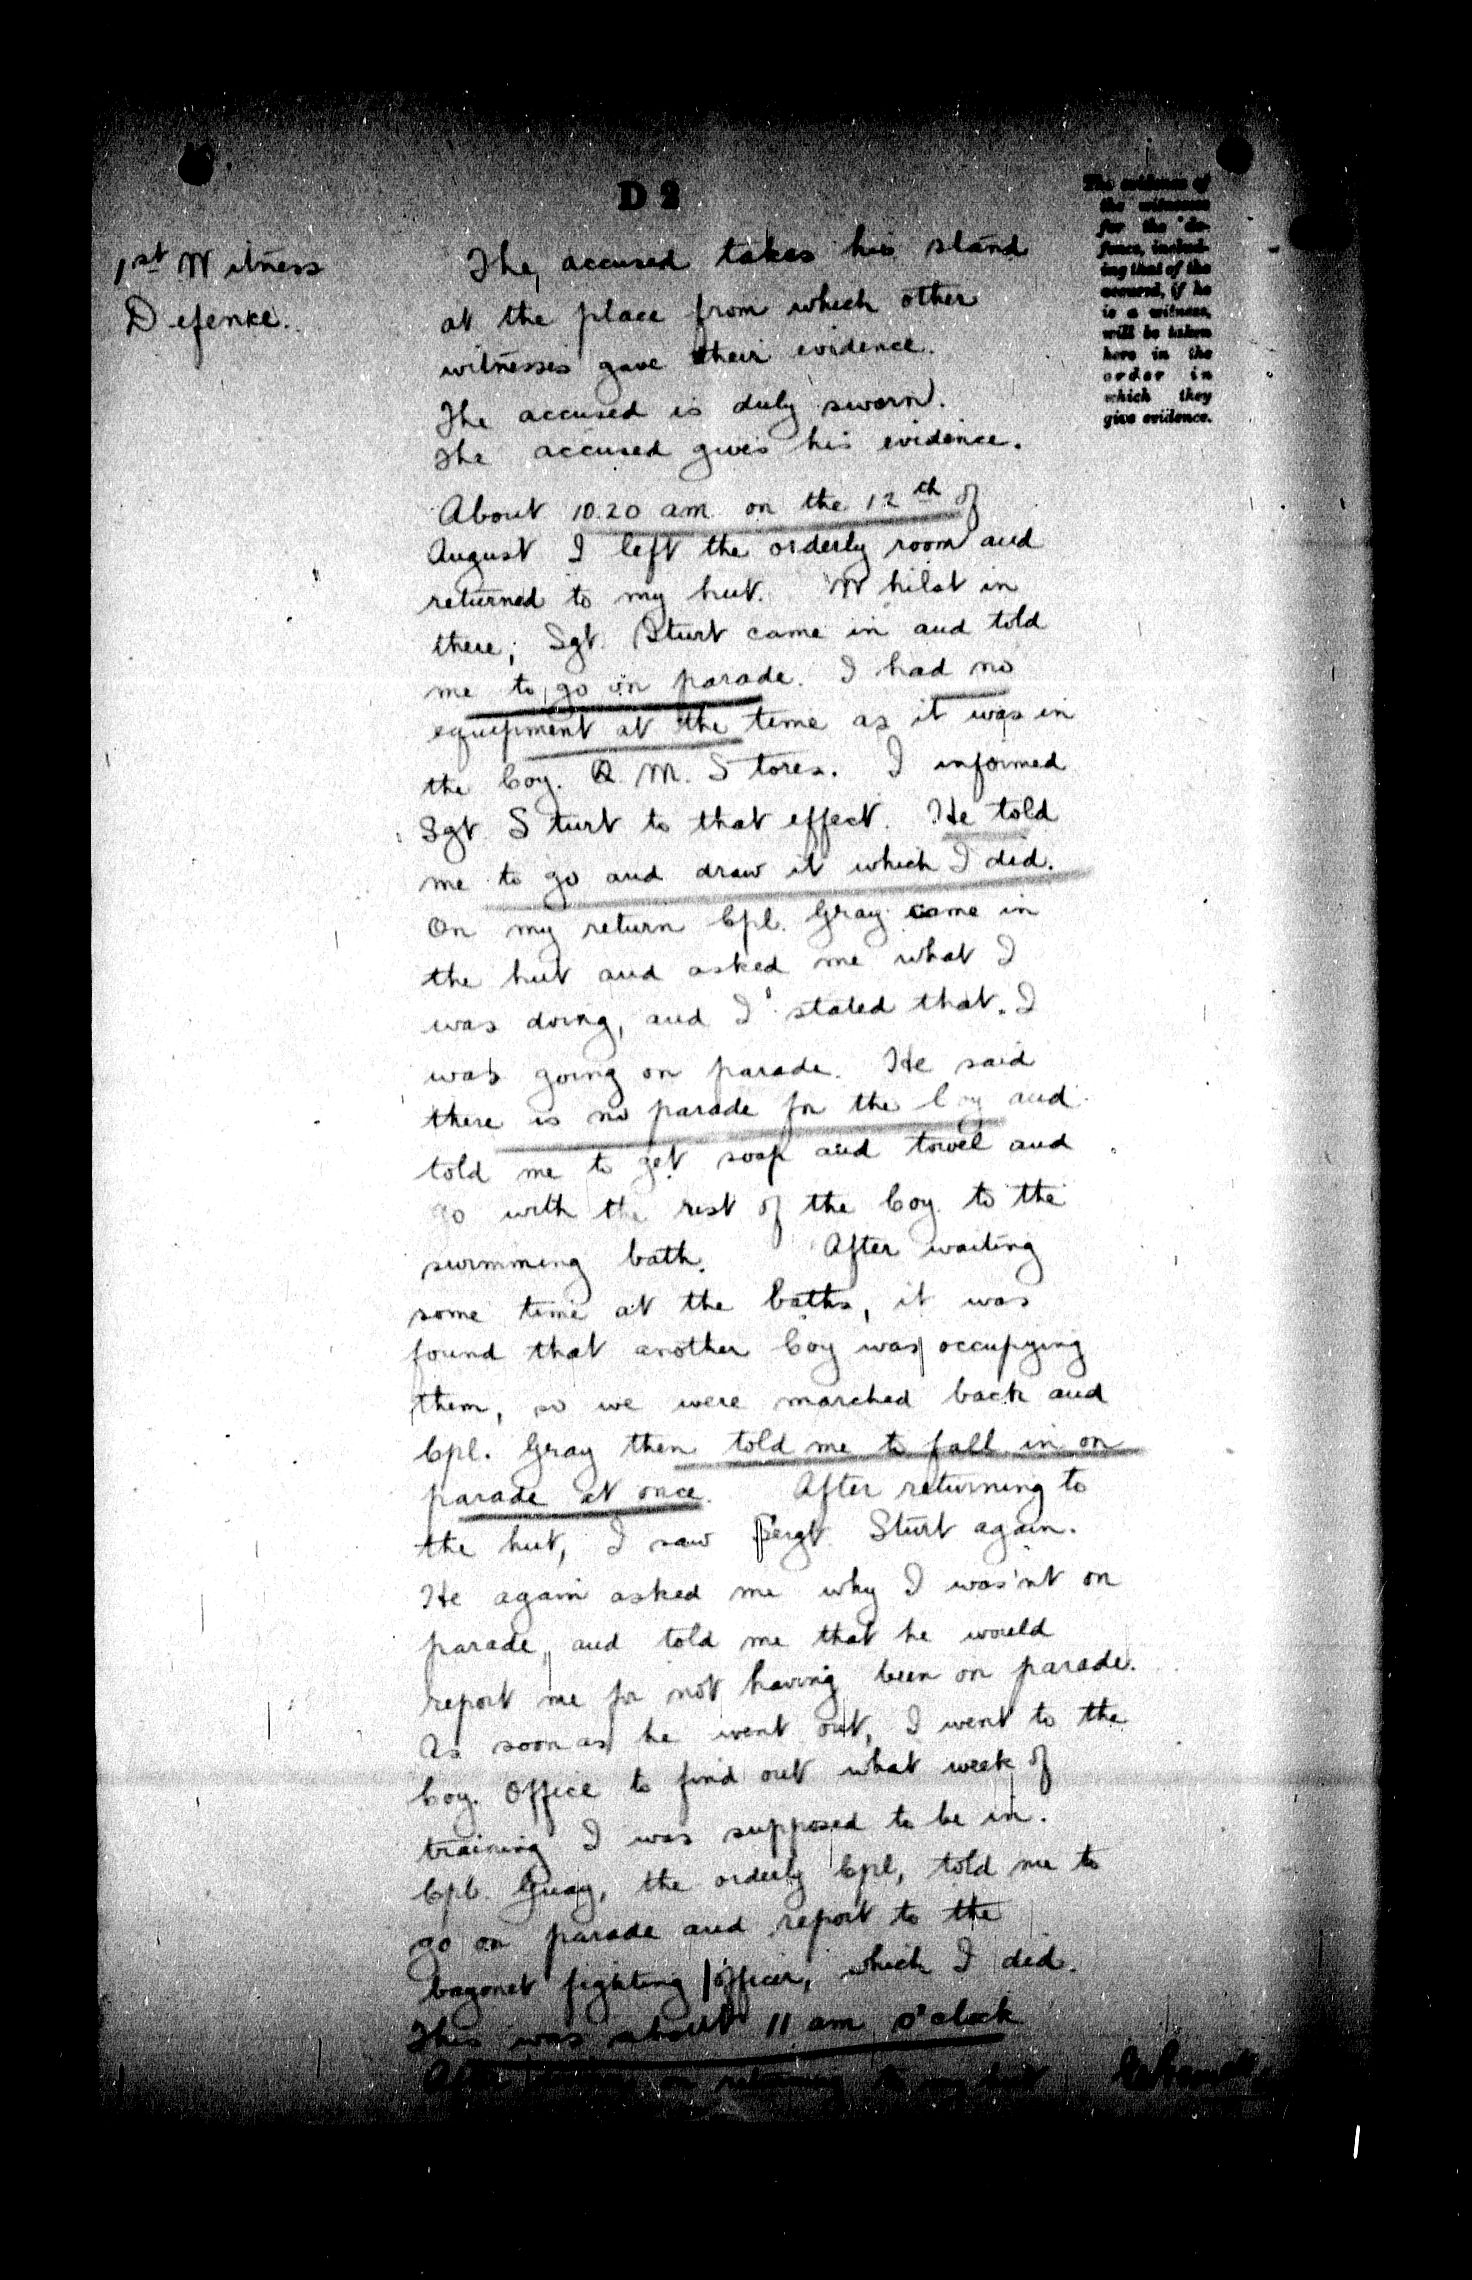 D 2
The evidence of
the witnesses
for the de-
fence, includ-
ing that of the
accused, if he
is a witness,
will be taken
here in the
order in
which they
give evidence.
1st Witness
Defence.
The accused takes his stand
at the place from which other
witnesses gave their evidence.
The accused is duly sworn.
The accused gives his evidence.
About 10.20 am on the 12th of
August I left the orderly room and
returned to my hut. Whilst in
there, Sgt. Sturt came in and told
me to go on parade. I had no
equipment at the time as it was in
the Coy. Q. M. Stores. I informed
Sgt Sturt to that effect. He told
me to go and draw it which I did.
On my return Cpl. Gray came in
the hut and asked me what I
was doing, and I stated that I
was going on parade. He said
there is no parade for the Coy and
told me to get soap and towel and
go with the rest of the Coy to the
swimming bath. After waiting
some time at the baths, it was
found that another Coy was occupying
them, so we were marched back and
Cpl. Gray then told me to fall in on
parade at once. After returning to
the hut, I saw Sergt. Sturt again.
He again asked me why I was'nt on
parade, and told me that he would
report me for not having been on parade.
As soon as he went out, I went to the
Coy. Office to find out what week of
training I was supposed to be in.
Cpl. Guay, the orderly Cpl, told me to
go on parade and report to the
bayonet fighting officer, which I did.
This was about 11 am o'clock
on returning to my hut